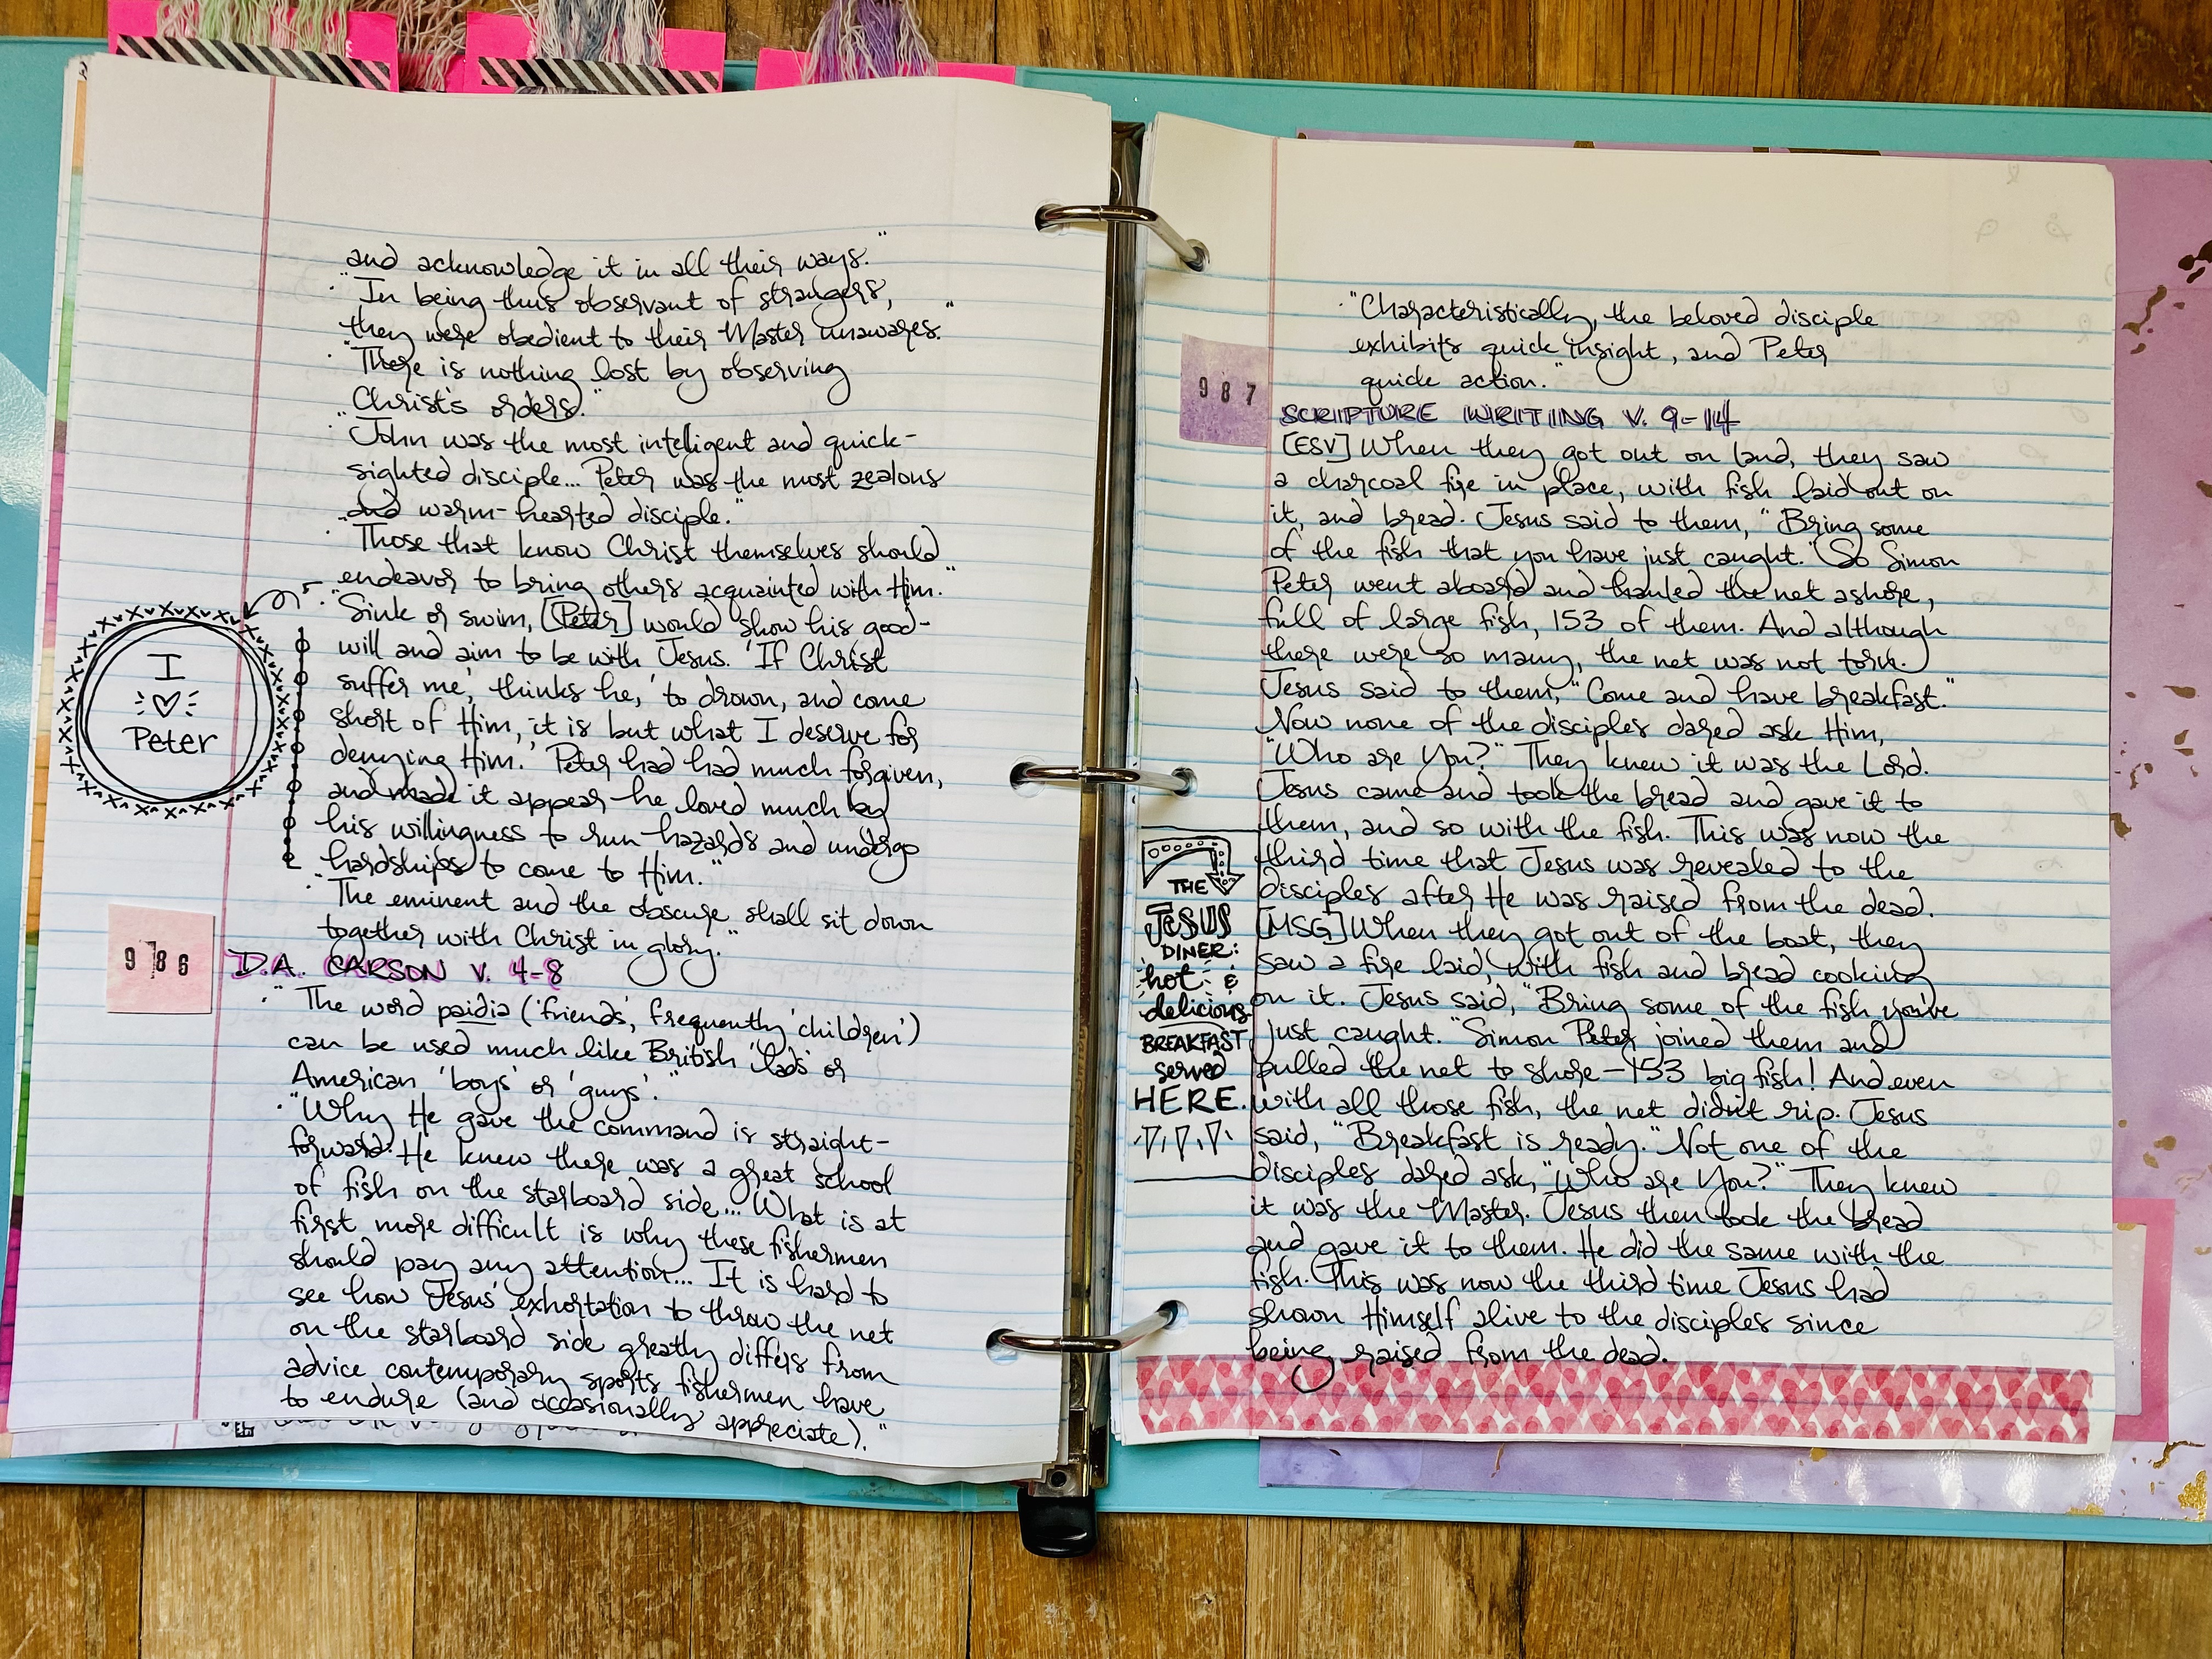 and acknowledge it in all their ways."
· "In being thus observant of strangers,
they were obedient to their Master unawares."
· "There is nothing lost by observing
Christ's orders."
· "John was the most intelligent and quick-
sighted disciple... Peter was the most zealous
and warm-hearted disciple."
· "Those that know Christ themselves should
endeavor to bring others acquainted with Him."
· "Sink or swim, [Peter] would show his good-
will and aim to be with Jesus. 'If Christ
suffer me', thinks he, 'to drown, and come
short of Him, it is but what I deserve for
denying Him.' Peter had had much forgiven,
and made it appear he loved much by
his willingness to run hazards and undergo
hardships to come to Him."
· "The eminent and the obscure shall sit down
together with Christ in glory."
I
♡
Peter
986
D.A. CARSON V. 4-8
· "The word paidia ('friends,' frequently 'children')
can be used much like British 'lads' or
American 'boys' or 'guys'."
· "Why He gave the command is straight-
forward: He knew there was a great school
of fish on the starboard side... What is at
first more difficult is why these fishermen
should pay any attention... It is hard to
see how Jesus' exhortation to throw the net
on the starboard side greatly differs from
advice contemporary sports fishermen have
to endure (and occasionally appreciate)."
· "Characteristically, the beloved disciple
exhibits quick insight, and Peter
quick action."
987
SCRIPTURE WRITING V. 9-14
[ESV] When they got out on land, they saw
a charcoal fire in place, with fish laid out on
it, and bread. Jesus said to them, "Bring some
of the fish that you have just caught." So Simon
Peter went aboard and hauled the net ashore,
full of large fish, 153 of them. And although
there were so many, the net was not torn.
Jesus said to them, "Come and have breakfast."
Now none of the disciples dared ask Him,
"Who are You?" They knew it was the Lord.
Jesus came and took the bread and gave it to
them, and so with the fish. This was now the
third time that Jesus was revealed to the
disciples after He was raised from the dead.
[MSG] When they got out of the boat, they
saw a fire laid, with fish and bread cooking
on it. Jesus said, "Bring some of the fish you've
just caught." Simon Peter joined them and
pulled the net to shore—153 big fish! And even
with all those fish, the net didn't rip. Jesus
said, "Breakfast is ready." Not one of the
disciples dared ask, "Who are You?" They knew
it was the Master. Jesus then took the bread
and gave it to them. He did the same with the
fish. This was now the third time Jesus had
shown Himself alive to the disciples since
being raised from the dead.
THE
JESUS
DINER:
hot &
delicious
BREAKFAST
served
HERE.